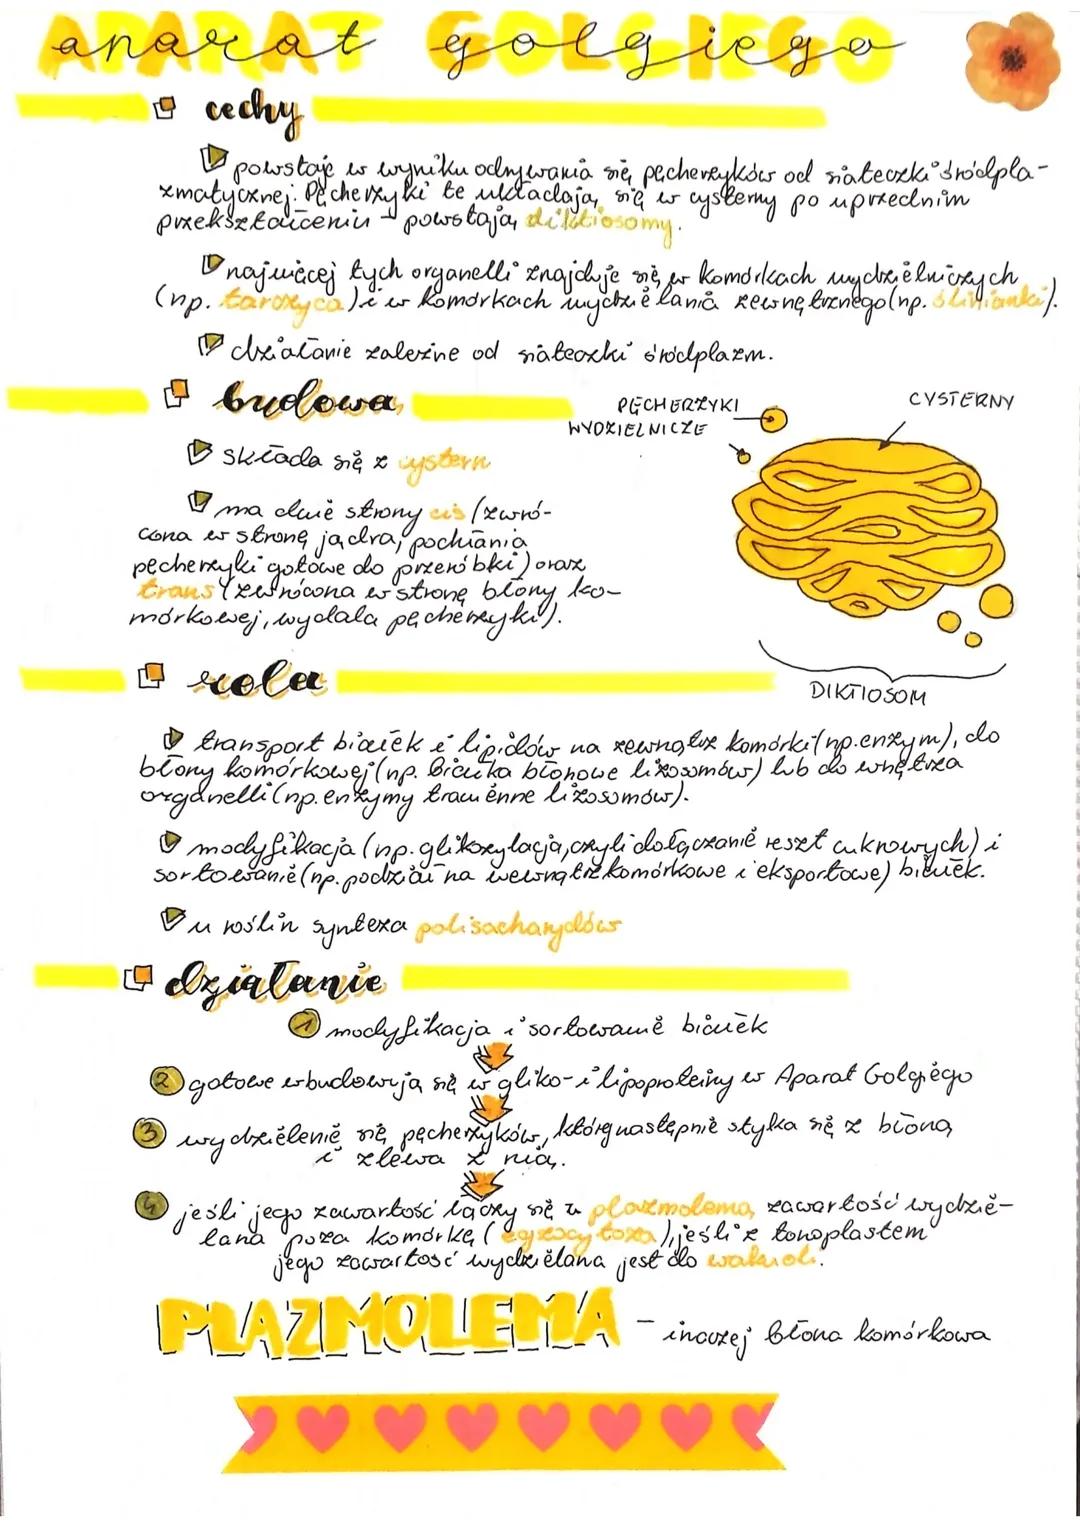 APARAT GOLGIEGO
aparat golgiego
cechy
powstaje w wyniku odrywania się pęcherzyków od siateczki śródpla-
zmatycznej. Pęcherzyki te układają się w cysterny po uprzednim
przekształceniu - powstają diktiosomy.
najwięcej tych organelli znajduje się w komórkach wydzielniczych
(np. tarczyca) i w komórkach wydzielania zewnętrznego (np. ślinianki).
działanie zależne od siateczki śródplazm.
budowa
PĘCHERZYKI
WYDZIELNICZE
CYSTERNY
składa się z cystern
ma dwie strony cis (zwró-
cona w stronę jądra, pochłania
pęcherzyki gotowe do przeróbki) oraz
trans (zwrócona w stronę błony ko-
mórkowej, wydala pęcherzyki).
DIKTIOSOM
rola
transport białek i lipidów na zewnątrz komórki (np. enzym), do
błony komórkowej (np. białka błonowe lizosomów) lub do wnętrza
organelli (np. enzymy trawienne lizosomów).
modyfikacja (np. glikozylacja, czyli dołączanie reszt cukrowych) i
sortowanie (np. podział na wewnątrzkomórkowe i eksportowe) białek.
u roślin synteza polisacharydów
działanie
1 modyfikacja i sortowanie białek
2 gotowe wbudowują się w gliko- i lipoproteiny w Aparat Golgiego
3 wydzielenie się pęcherzyków, któreg następnie styka się z błoną
i zlewa z nią.
4 jeśli jego zawartość łączy się z plazmolemą zawartość wydzie-
lana poza komórkę (egzocytoza), jeśli z tonoplastem
jego zawartość wydzielana jest do wakuoli.
PLAZMOLEMA - inaczej błona komórkowa